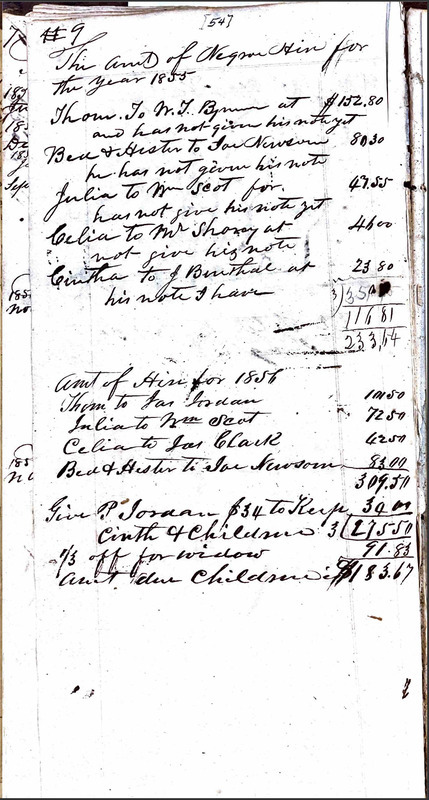 #9
[54]
The Amt of Negroe Hire for
the year 1855
Thom. To W. T. Bynum at $152.80
and has not given his note yet
Bed & Hester to Joe Newsom 80.30
he has not given his note
Julia to Wm Scot for. 47.55
has not give his note yet
Celia to Mr at 46.00
not give his note
Cintha to J at 23 80
his note I have
3)35
116 81
233,64
Amt of Hire for 1856
Thom to Jas Jordan
Julia to Wm Scot 72 50
Celia to Jas Clack 42 50
Bed & Hester to Joe Newsom 83 00
309.50
Give P. Jordan $34 to Keep 34 00
Cinth & Children 3(275 50
1/3 off for widow 91.83
Amt due Children is $183.67